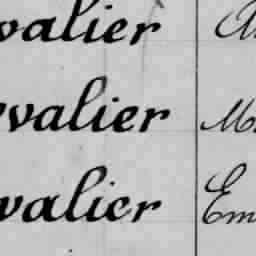 valier A
valier M
valier Em